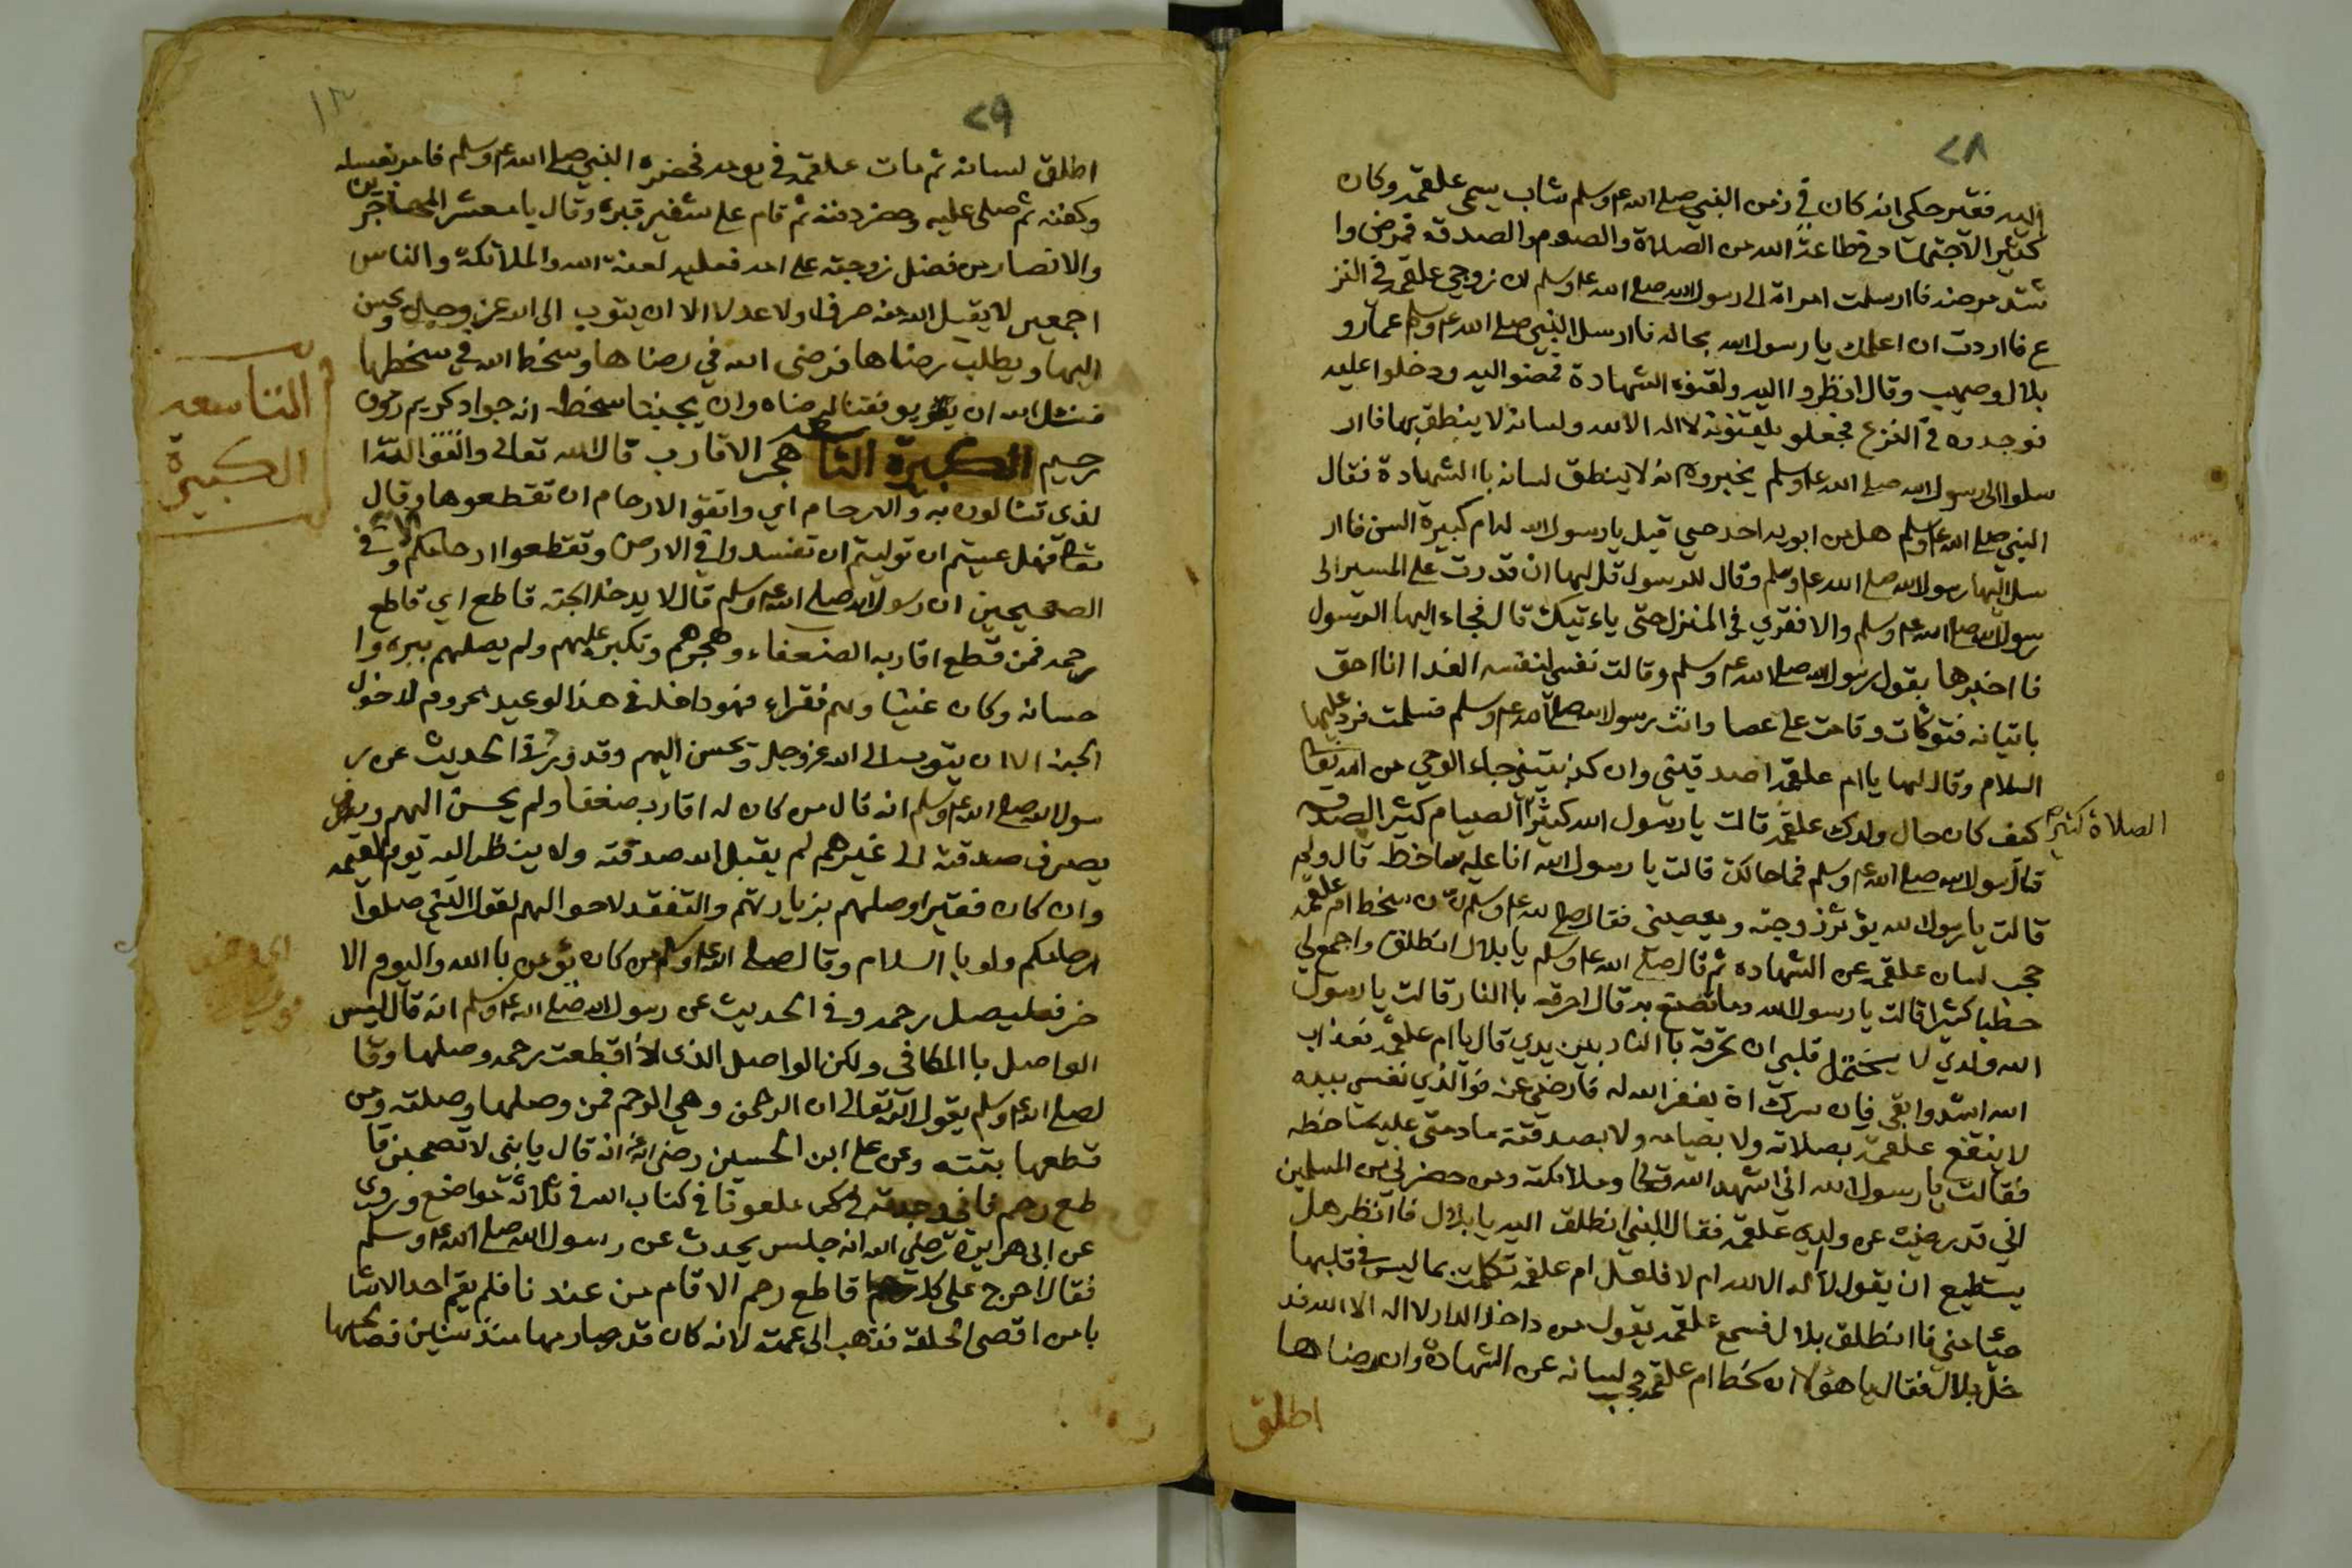 ٢٨
اليه فقير حكى انه كان في زمن النبي صلى الله عليه وسلم شاب يسمى علقمه وكان
كثير الاجتهاد في طاعة الله من الصلاة والصوم والصدقه فمرض وا
شتد مرضه فاارسلت امراة الى رسول الله صلى الله عليه وسلم ان زوجي علقمه في النز
ع فااردت ان اعلمك يا رسول الله بحاله فاارسل النبي صلى الله عليه وسلم عمار و
بلال وصهيب وقال انظروا اليه ولقنوه الشهادة فمضو اليه ودخلوا عليه
فوجدوه في النزع فجعلو يلقنونه لا اله الا الله ولسانه لا ينطق بها فاار
سلوا الى رسول الله صلى الله عليه وسلم يخبروه انه لا ينطق لسانه باالشهادة فقال
النبي صلى الله عليه وسلم هل من ابويه احد حيي قيل يا رسول الله له ام كبيرة السن فاار
سل اليها رسول الله صلى الله عليه وسلم وقال للرسول قل لها ان قدرت على المسير الى
رسول الله صلى الله عليه وسلم والا فقري في المنزل حتى ياءتيك قال فجاء اليها الرسول
فااخبرها بقول رسول الله صلى الله عليه وسلم وقالت نفسي لنفسه الفدا انا احق
باتيانه فتوكات وقامت على عصا واتت رسول الله صلى الله عليه وسلم فسلمت فرد عليها
السلام وقال لها يا ام علقمه اصدقيني وان كذبتيني جاء الوحي من الله تعالى
كيف كان حال ولدك علقمه قالت يا رسول الله كثير الصيام كثير الصدقه
الصلاة كثير
قال رسول الله صلى الله عليه وسلم فما حالك قالت يا رسول الله انا عليه ساخطه قال ولم
قالت يا رسول الله يؤثر زوجته ويعصيني فقال صلى الله عليه وسلم ان سخط ام علقمه
حجب لسان علقمه عن الشهاده ثم قال صلى الله عليه وسلم يا بلال انطلق واجمع لي
حطبا كثيرا قالت يا رسول الله وما تصنع به قال احرقه باالنار قالت يا رسول
الله ولدي لا يحتمل قلبي ان تحرقه باالنار بين يدي قال يا ام علقمه فعذاب
الله اشد وابقى فان سرك ان يغفر الله له فارضي عنه فوالذي نفسي بيده
لا ينتفع علقمه بصلاته ولا بصيامه ولا بصدقته ما دمتي عليه ساخطه
فقالت يا رسول الله اني اشهد الله تعالى وملائكته ومن حضر ني من المسلمين
اني قد رضيت عن ولدي علقمه فقال النبي انطلق اليه يا بلال فاانظر هل
يستطيع ان يقول لا اله الا الله ام لا فلعل ام علقمه تكلمت بما ليس في قلبها
حيا مني فاانطلق بلال فسمع علقمه يقول من داخل الدار لا اله الا الله فد
خل بلال فقال يا هؤلا ان سخط ام علقمه حجب لسانه عن الشهادة وان رضاها
اطلق
٢٩
١٣
اطلق لسانه ثم مات علقمه في يومه فحضره النبي صلى الله عليه وسلم فامر بغسله
وكفنه ثم صلى عليه وحضر دفنه ثم قام على شفير قبره وقال يا معشر المهاجرين
والانصار من فضل زوجته على امه فعليه لعنة الله والملائكة والناس
اجمعين لا يقبل الله منه صرفا ولا عدلا الا ان يتوب الى الله عز وجل ويحسن
اليها ويطلب رضاها فرضى الله في رضاها وسخط الله في سخطها
فنسئل الله ان يوفقنا لرضاه وان يجنبنا سخطه انه جواد كريم رؤف
رحيم الكبيرة التاسعه هجر الاقارب قال الله تعالى واتقوا الله ا
لذي تسالون به والارحام اي واتقو الارحام ان تقطعوها وقال
تعالى فهل عسيتم ان توليتم ان تفسدوا في الارض وتقطعوا ارحامكم وفي
الصحيحين ان رسول الله صلى الله عليه وسلم قال لا يدخل الجنه قاطع اي قاطع
رحمه فمن قطع اقاربه الضعفاء وهجرهم وتكبر عليهم ولم يصلهم ببره وا
حسانه وكان غنيا وهم فقراء فهو داخل في هذا لوعيد محروم لدخول
الجنه الا ان يتوب الى الله عز وجل ويحسن اليهم وقد ورد في الحديث عن ر
سول الله صلى الله عليه وسلم انه قال من كان له اقارب ضعفا ولم يحسن اليهم و
يصرف صدقته الى غيرهم لم يقبل الله صدقته ولا ينظر اليه يوم القيمه
وان كان فقيرا وصلهم بزيارتهم والتفقد لاحوالهم لقول النبي صلوا
ارحامكم ولو با السلام وقال صلى الله عليه وسلم من كان يؤمن باالله واليوم الا
خر فعليصل رحمه وفي الحديث عن رسول الله صلى الله عليه وسلم انه قال ليس
الواصل باالمكافي ولكن الواصل الذي اذا قطعت رحمه وصلها وقا
ل صلى الله عليه وسلم يقول الله تعالى ان الرحمن وهي الرحم فمن وصلها وصلته ومن
قطعها بتته وعن علي ابن الحسين رضي الله عنه انه قال يا بني لا تصحبن قا
طع رحم فاني وجدته ملعونا في كتاب الله في ثلاثة مواضع وروي
عن ابى هريرة رضي الله انه جلس يحدث عن رسول الله صلى الله عليه وسلم
فقال احرج على كل قاطع رحم الا قام من عند نا فلم يقم احد الا شا
با من اقصى الحلقة فذهب الى عمته لانه كان قد صارمها منذ سنين فصالحها
التاسعه
الكبيرة